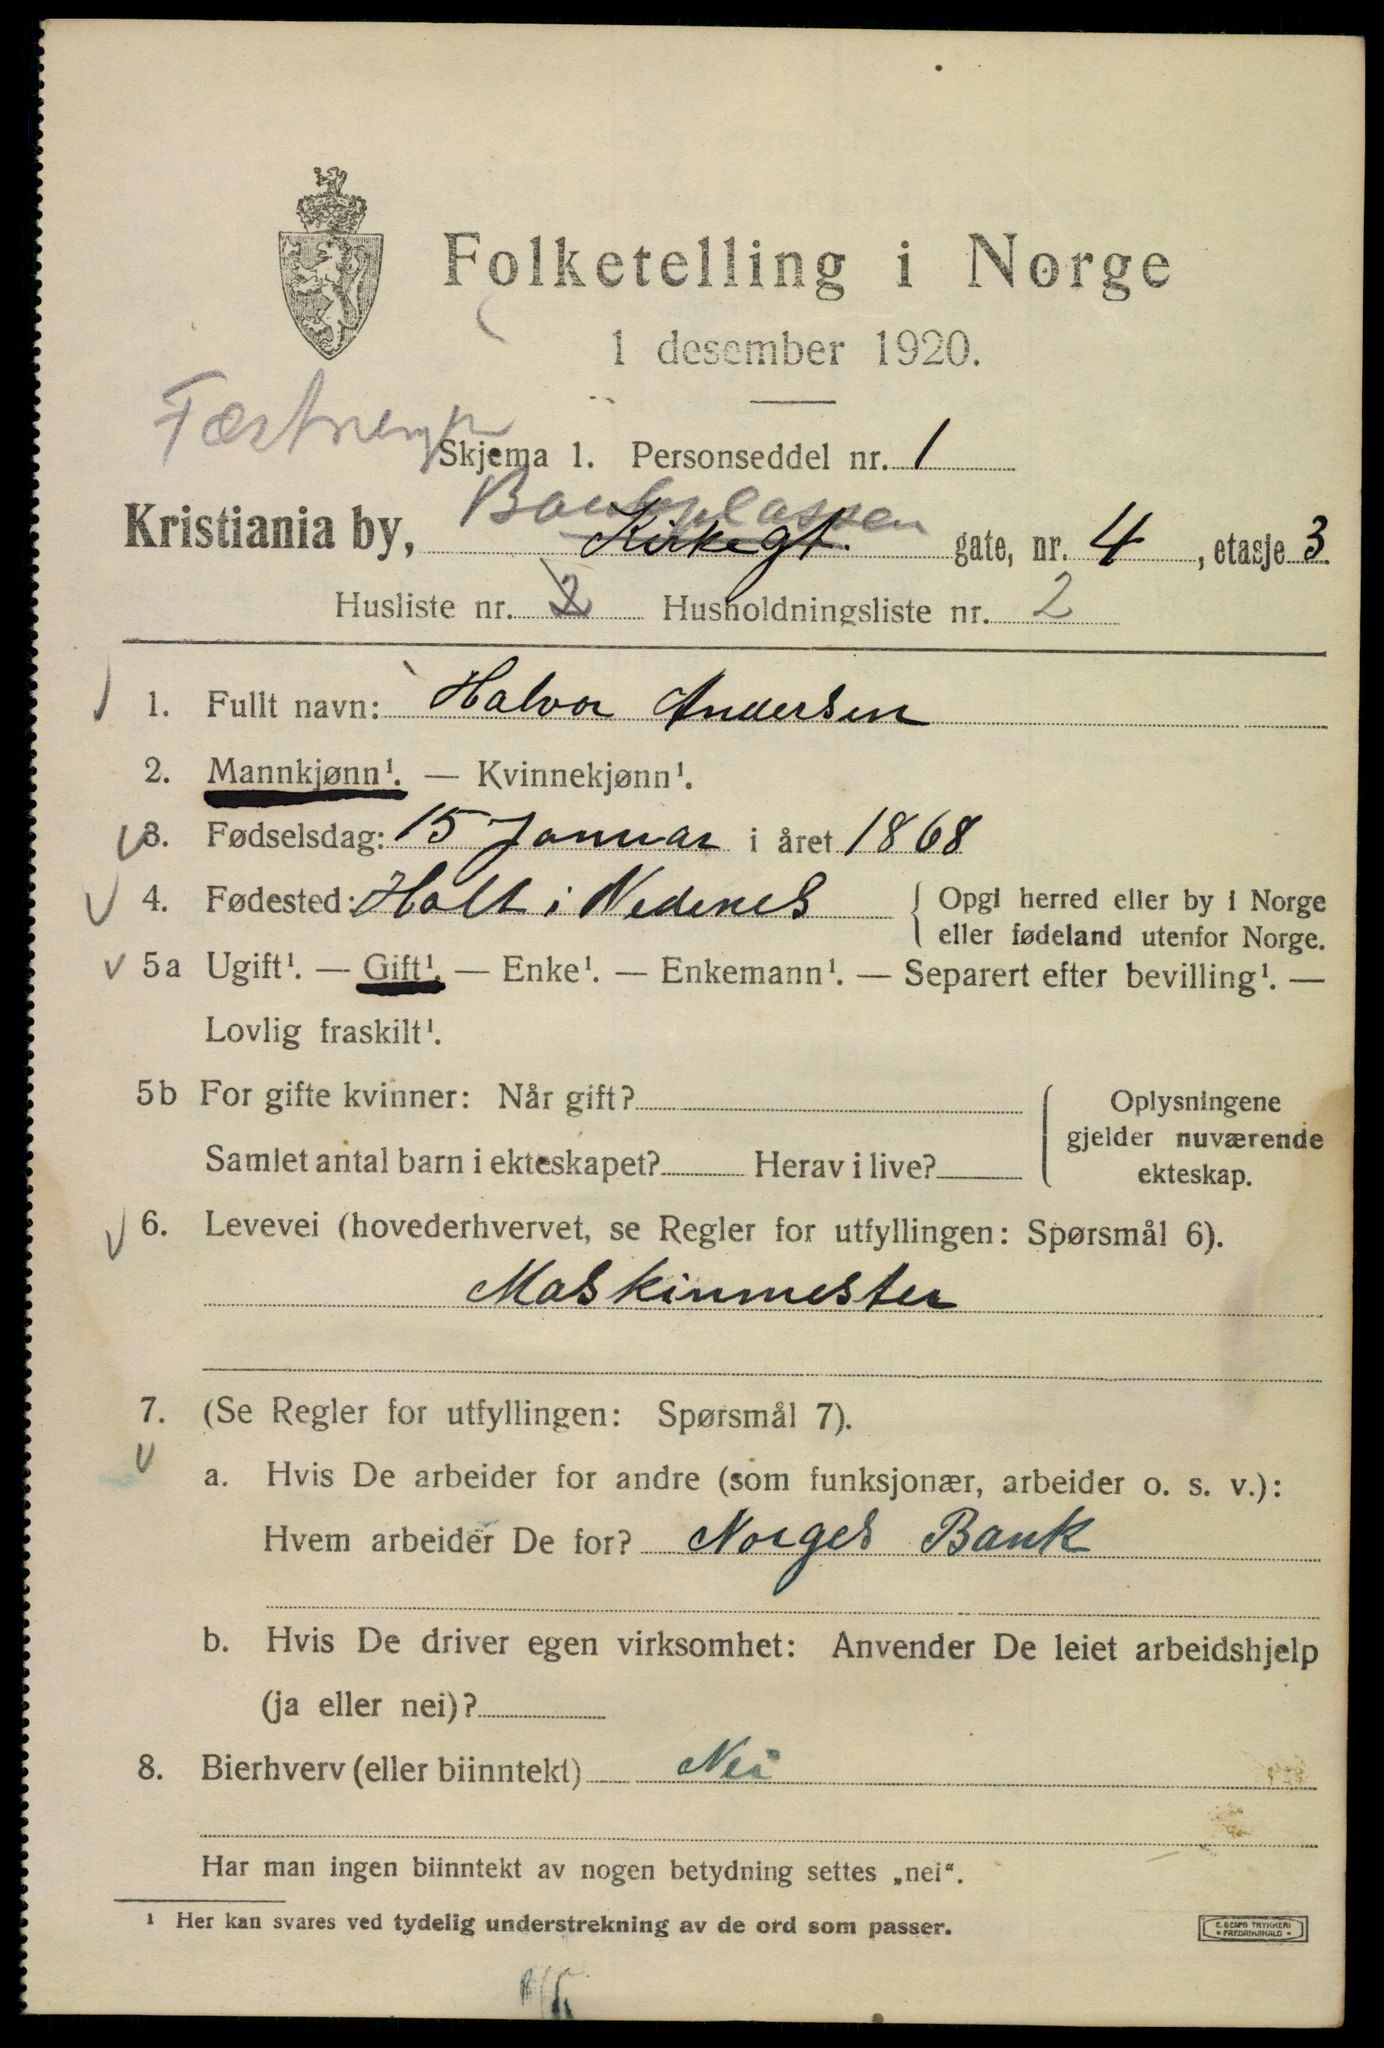 Folketelling i Norge
1 desember 1920.
Skjema 1. Personseddel nr. 1
Bankplassen
Kristiania by, Kirkegt. gate, nr. 4, etasje 3
Husliste nr. 2 Husholdningsliste nr. 2
1. Fullt navn: Halvor Andersen
2. Mannkjønn¹. — Kvinnekjønn¹.
3. Fødselsdag: 15 Januar i året 1868
4. Fødested: Holt i Nedenes { Opgi herred eller by i Norge
eller fødeland utenfor Norge.
5a Ugift¹. — Gift¹. — Enke¹. — Enkemann¹. — Separert efter bevilling¹. —
Lovlig fraskilt¹.
5b For gifte kvinner: Når gift? { Oplysningene
gjelder nuværende
Samlet antal barn i ekteskapet? Herav i live?
ekteskap.
6. Levevei (hovederhvervet, se Regler for utfyllingen: Spørsmål 6).
Maskinmester
7. (Se Regler for utfyllingen: Spørsmål 7).
a. Hvis De arbeider for andre (som funksjonær, arbeider o. s. v.):
Hvem arbeider De for? Norges Bank
b. Hvis De driver egen virksomhet: Anvender De leiet arbeidshjelp
(ja eller nei)?
8. Bierhverv (eller biinntekt) Nei
Har man ingen biinntekt av nogen betydning settes „nei“.
¹ Her kan svares ved tydelig understrekning av de ord som passer.
E. SEM'S TRYKKERI
• FREDRIKSHALD •